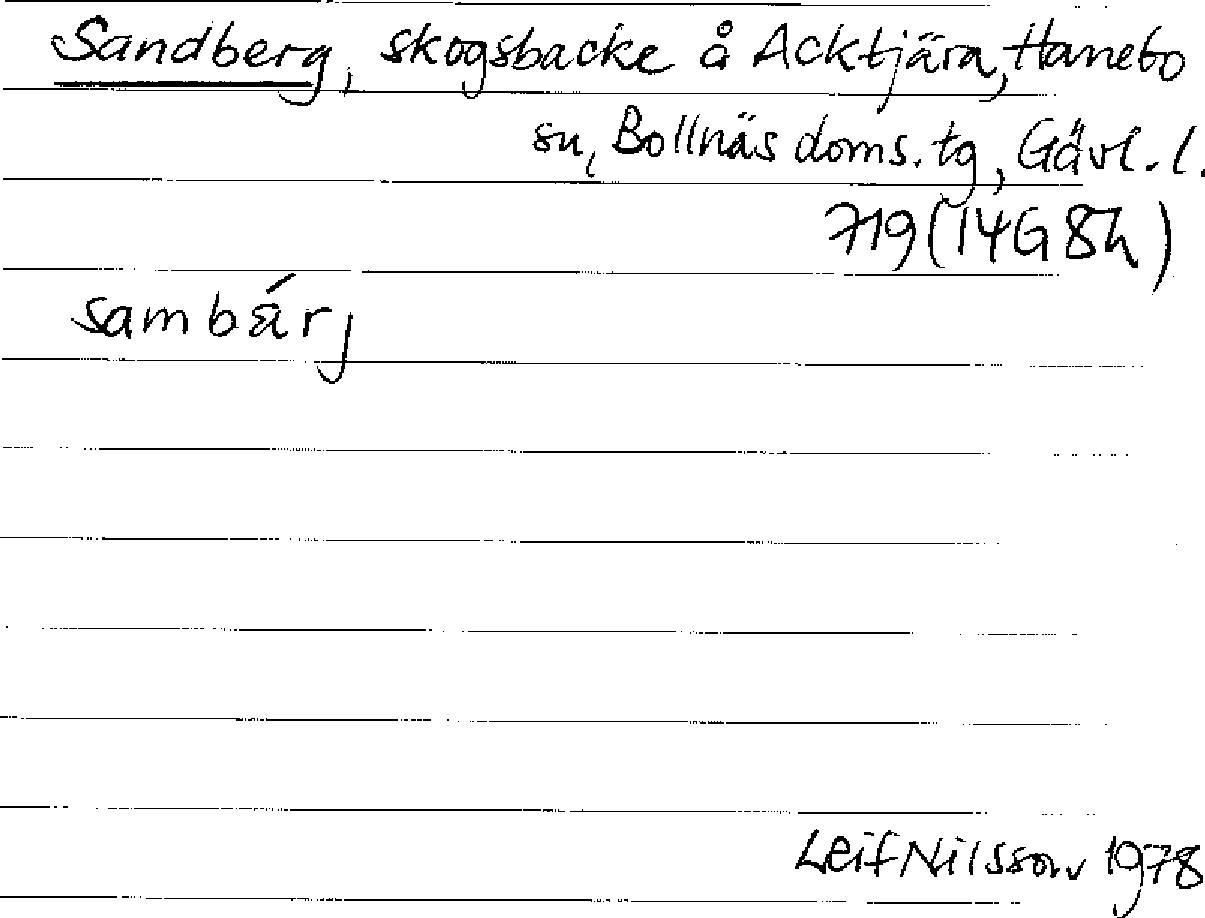 Sandberg, skogsbacke å Acktjära, Hanebo
sn, Bollnäs doms. tg, Gävl. l.
719 (14G 8h)
sambä́rj
Leif Nilsson 1978